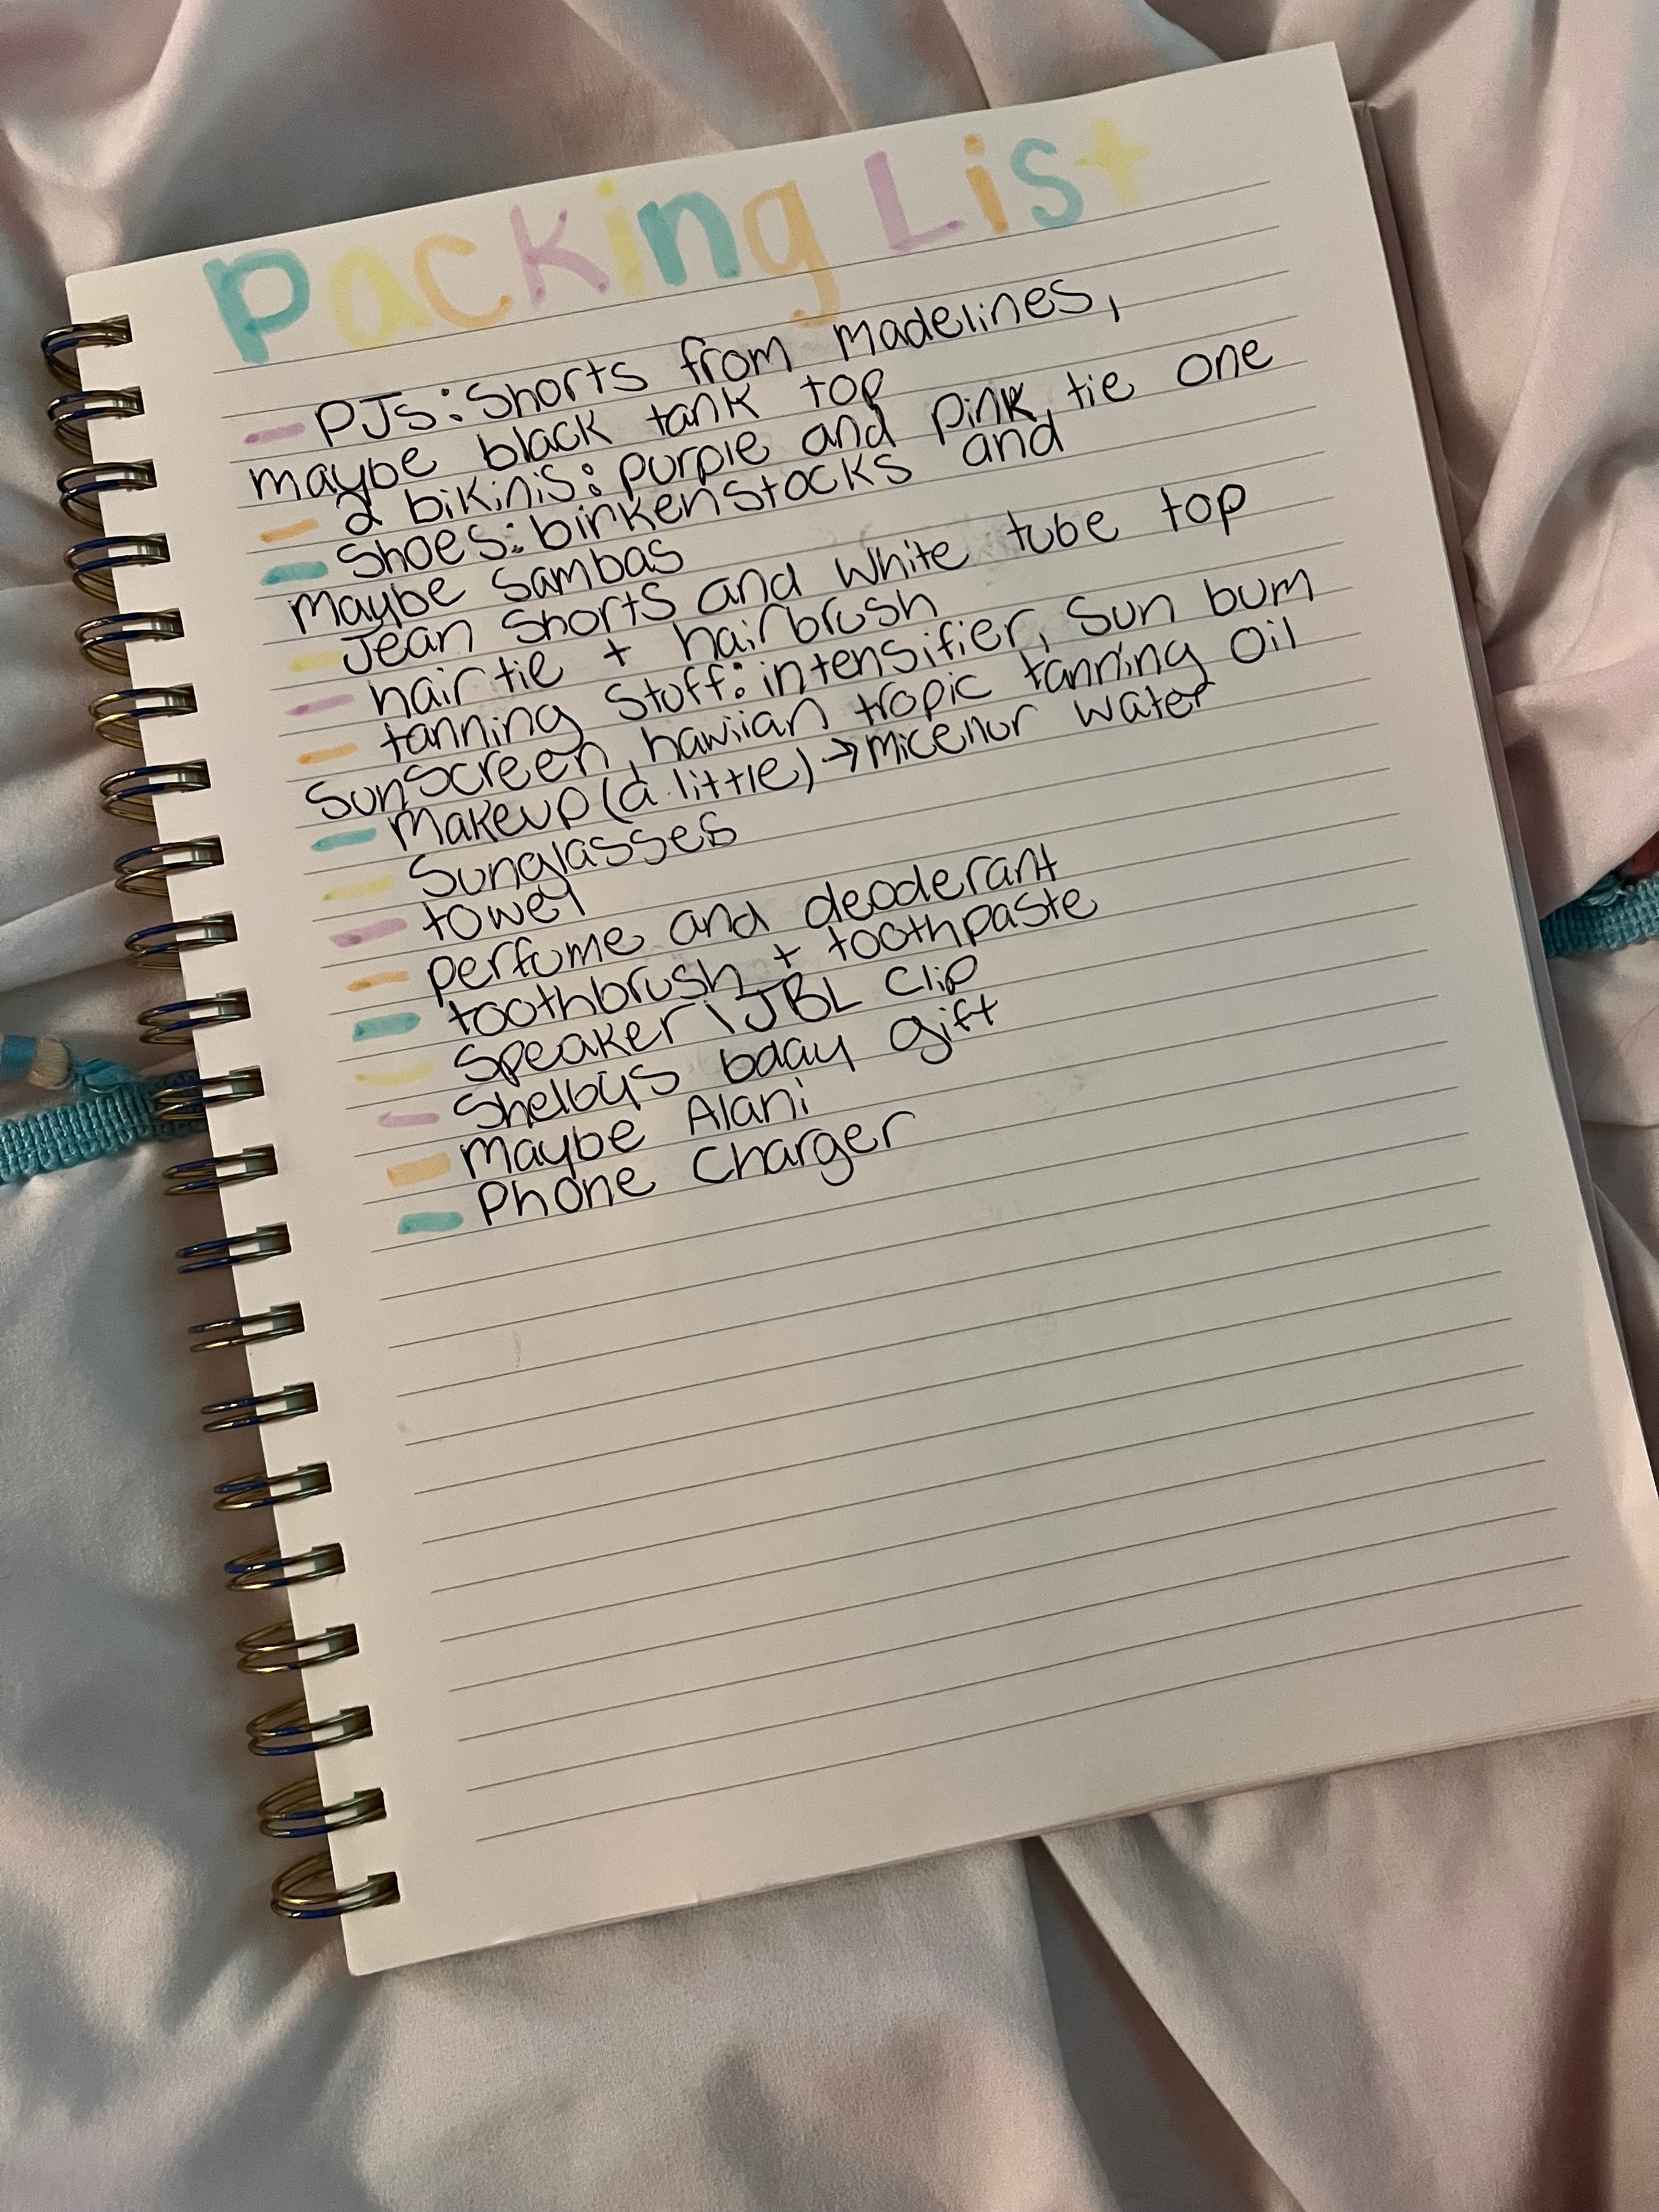 Packing List
- PJs: Shorts from madelines,
maybe black tank top
- 2 bikinis: purple and pink, tie one
- Shoes: birkenstocks and
maybe sambas
- Jean Shorts and white tube top
- hair tie + hairbrush
- tanning stuff: intensifier, sun bum
sunscreen, hawiian tropic tanning oil
- makeup (a little) → micellur water
- Sunglasses
- towel
- perfume and deoderant
- toothbrush + toothpaste
- Speaker \ JBL clip
- Shelbys bday gift
- maybe Alani
- Phone charger